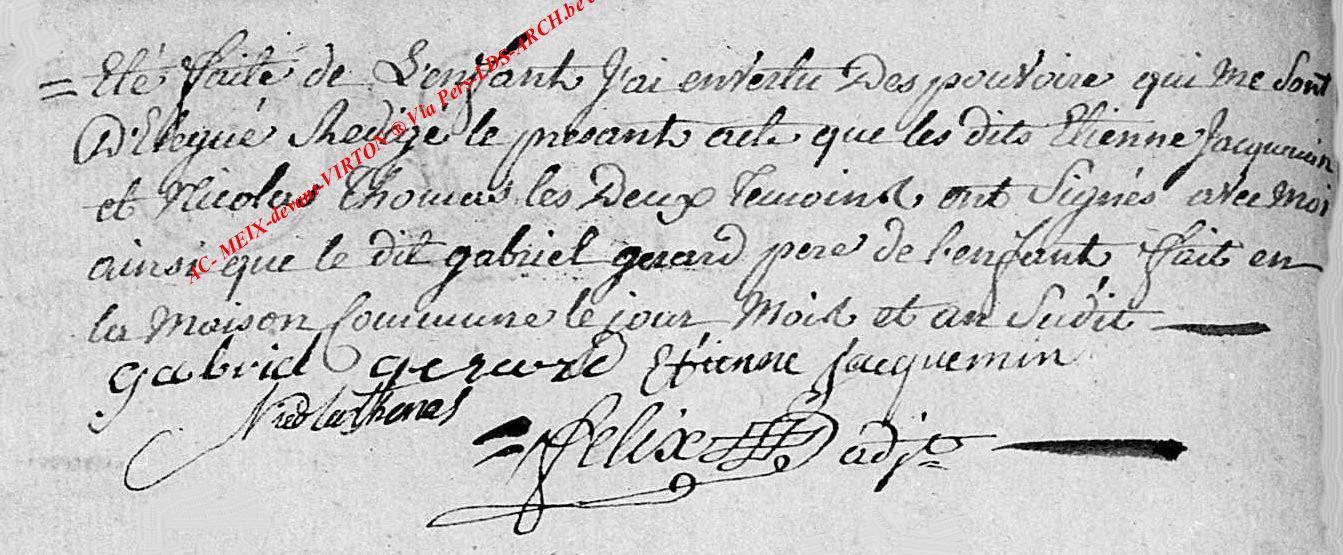 = Eté faite de L'enfant J'ai en vertu Des pouvoire qui Me Sont
D'Elegué Redigé le presant acte que les dits Etienne Jacquemin
et Nicolas Thomas les Deux Temoins ont Signés avec Moi
ainsi que le dit gabriel gerard pere de l'enfant fait en
la Maison Commune le jour Mois et an Sudit
gabriel gerard Etienne Jacquemin
Nicolas thomas
= felix adj.
AC- MEIX-devant-VIRTON ® Via Pers-LDS-ARCH.be